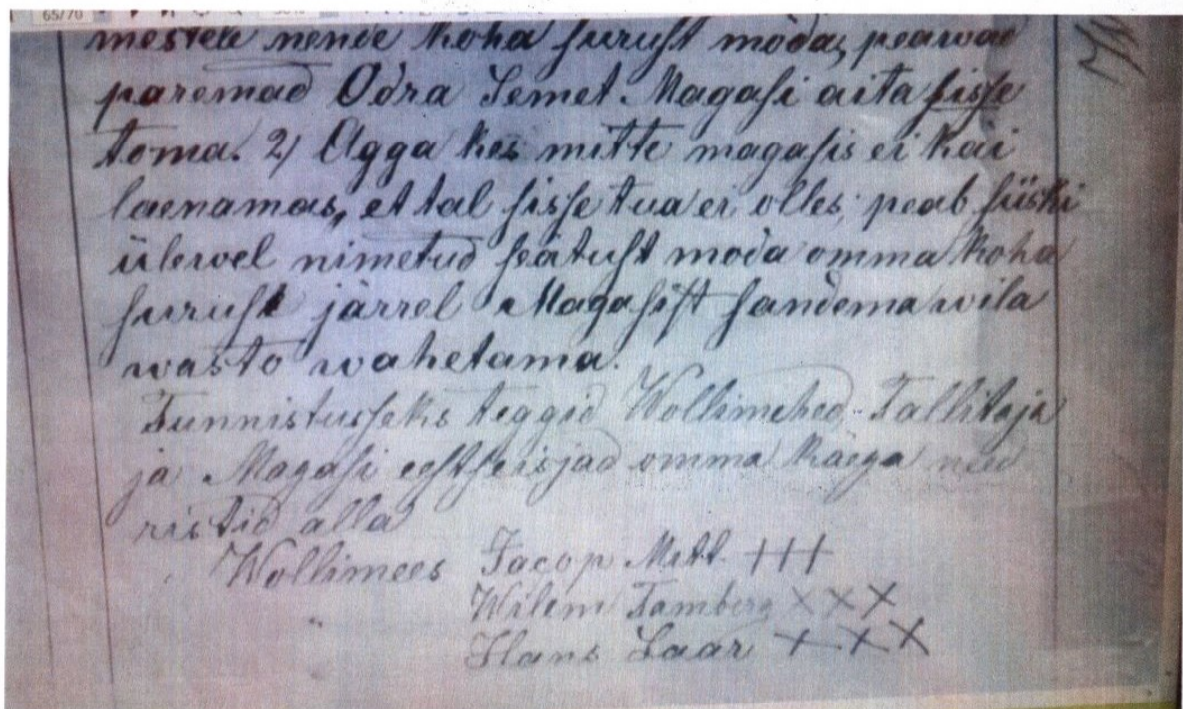 65/70
mestele nende koha surust möda, peawad
paremad Odra Semet Magasi aita sisse
toma. 2) Agga kes mitte magasis ei käi
laenamas, et tal sisse tua ei olles, peab siiski
ülewel nimetud seätust möda omma koha
surust järrel Magasist sandema wila
wasto wahetama.
Tunnistusseks teggid Wollimehed, Tallitaja
ja Magasi eestseisjad omma käega need
ristid alla
Wollimees Jacop Mett +++
" Wilem Tamberg XXX
Hans Laar XXX